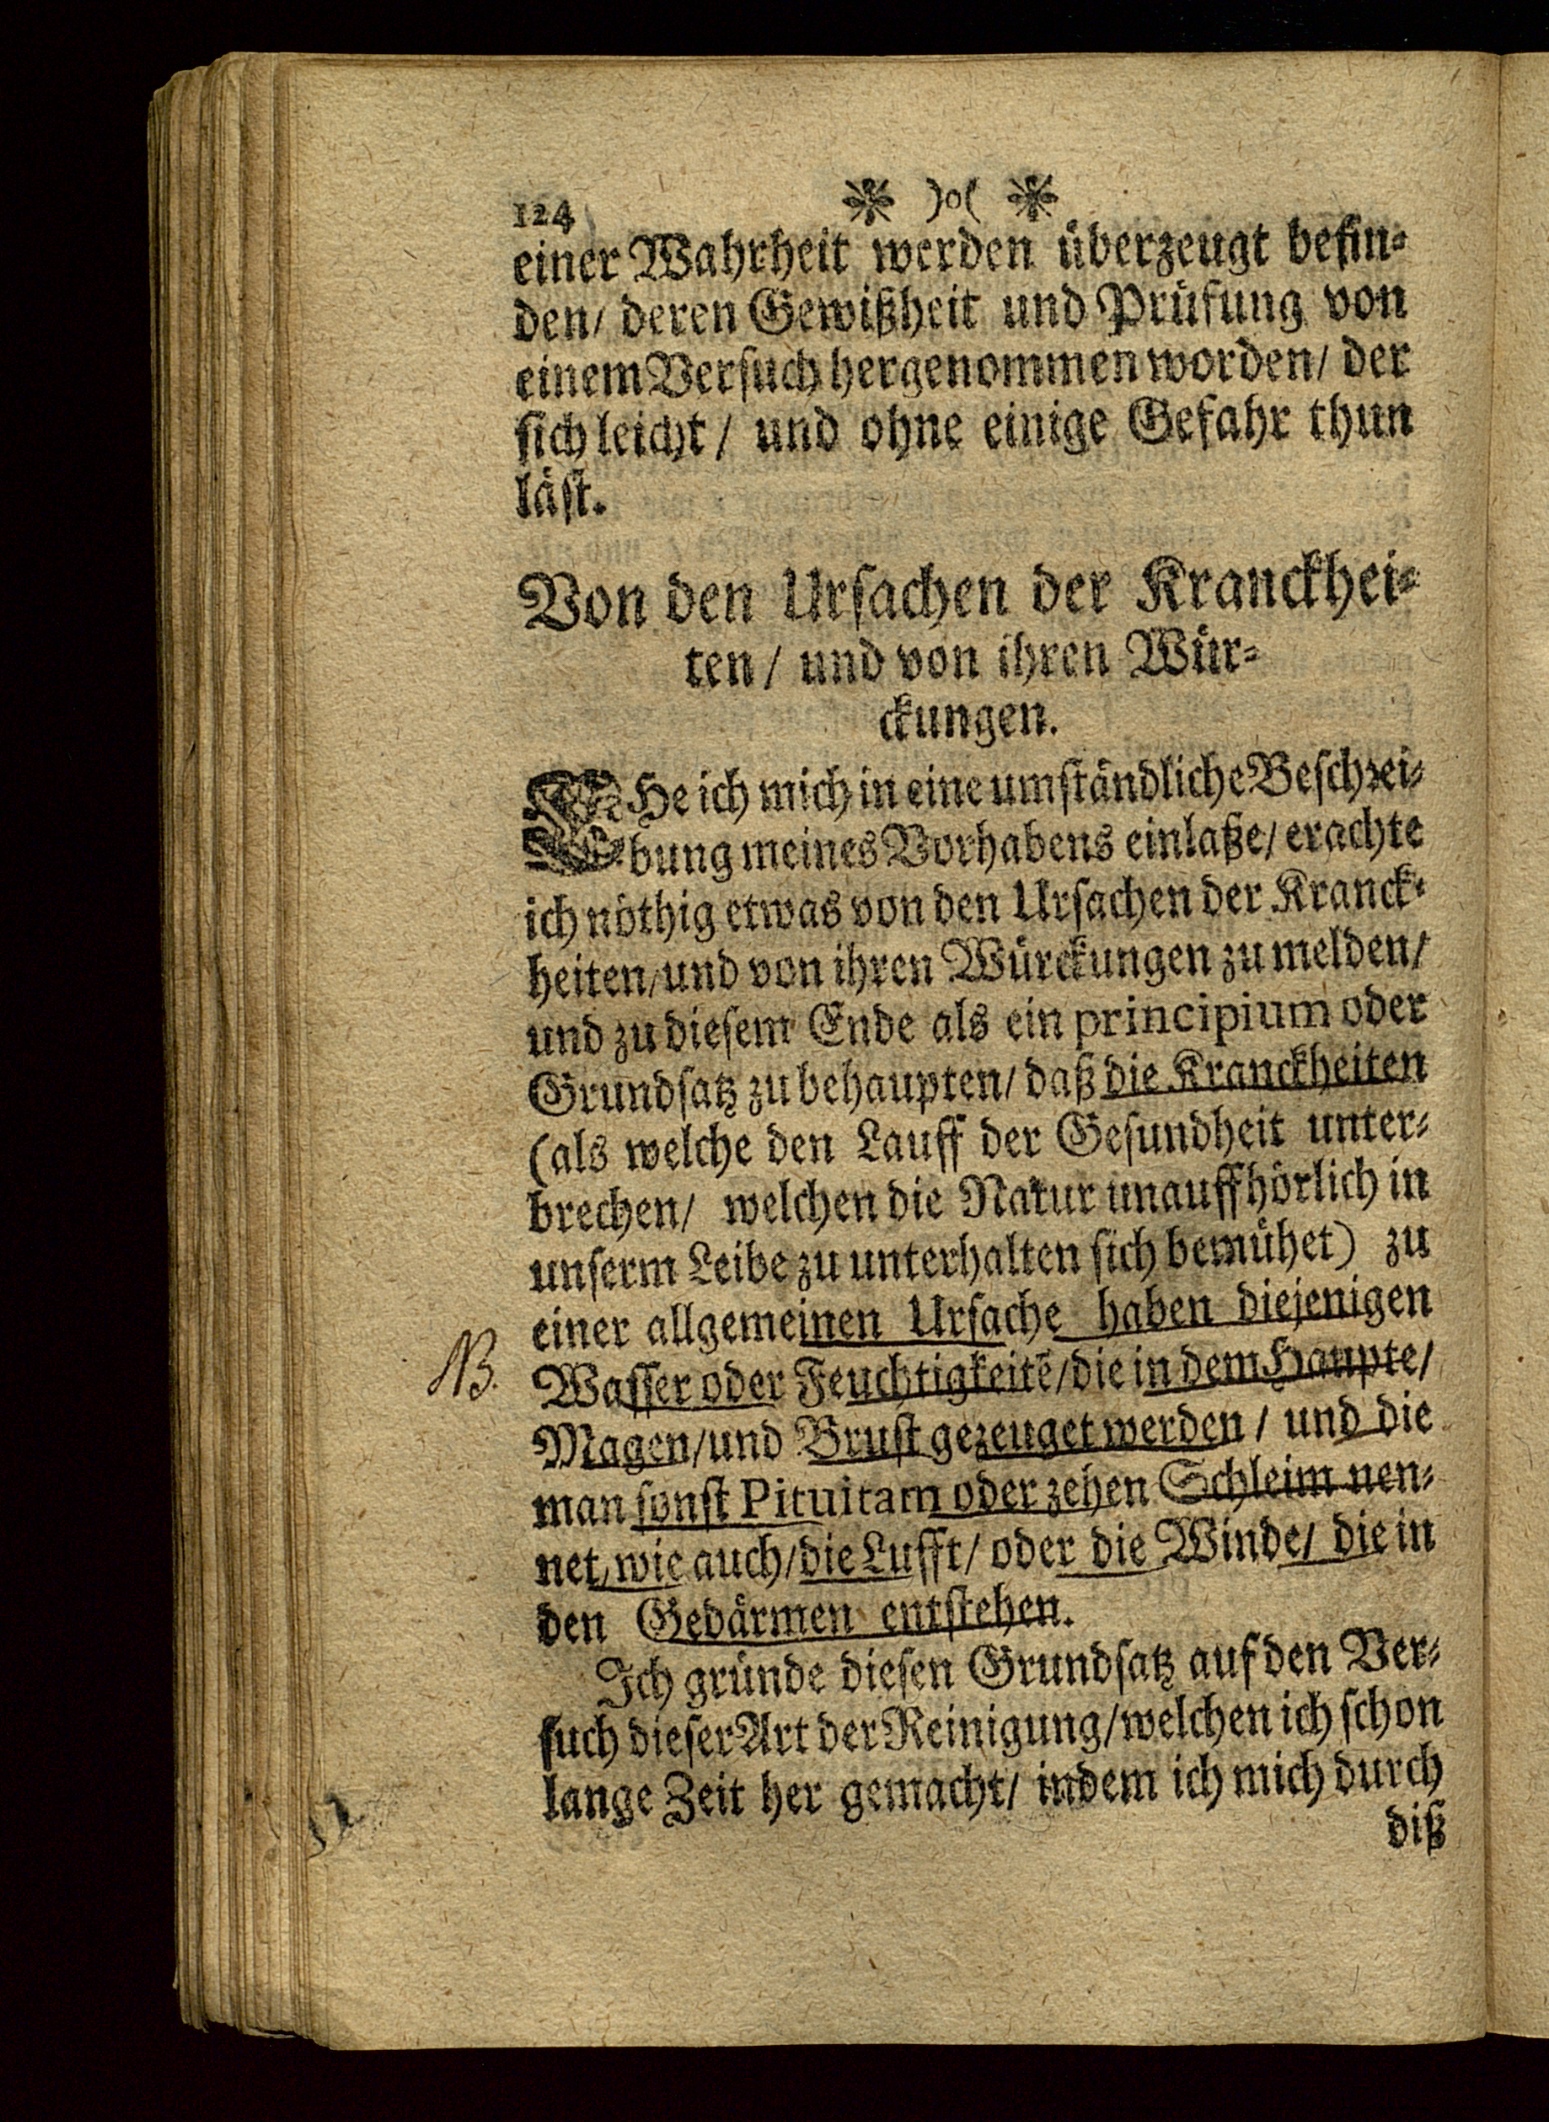 124 ❋ )o( ❋
einer Wahrheit werden überzeugt befin⸗
den/ deren Gewißheit und Prüfung von
einem Versuch hergenommen worden/ der
sich leicht/ und ohne einige Gefahr thun
läst.
Von den Ursachen der Kranckhei⸗
ten/ und von ihren Wür⸗
ckungen.
EHe ich mich in eine umständliche Beschrei⸗
bung meines Vorhabens einlaße/ erachte
ich nöthig etwas von den Ursachen der Kranck⸗
heiten/ und von ihren Würckungen zu melden/
und zu diesem Ende als ein principium oder
Grundsatz zu behaupten/ daß die Kranckheiten
(als welche den Lauff der Gesundheit unter⸗
brechen/ welchen die Natur unauffhörlich in
unserm Leibe zu unterhalten sich bemühet) zu
einer allgemeinen Ursache haben diejenigen
NB. Wasser oder Feuchtigkeitē/ die in dem Haupte/
Magen/ und Brust gezeuget werden/ und die
man sonst Pituitam oder zehen Schleim nen⸗
net, wie auch/ die Lufft/ oder die Winde/ die in
den Gedärmen entstehen.
Ich gründe diesen Grundsatz auf den Ver⸗
such dieser Art der Reinigung/ welchen ich schon
lange Zeit her gemacht/ indem ich mich durch
diß